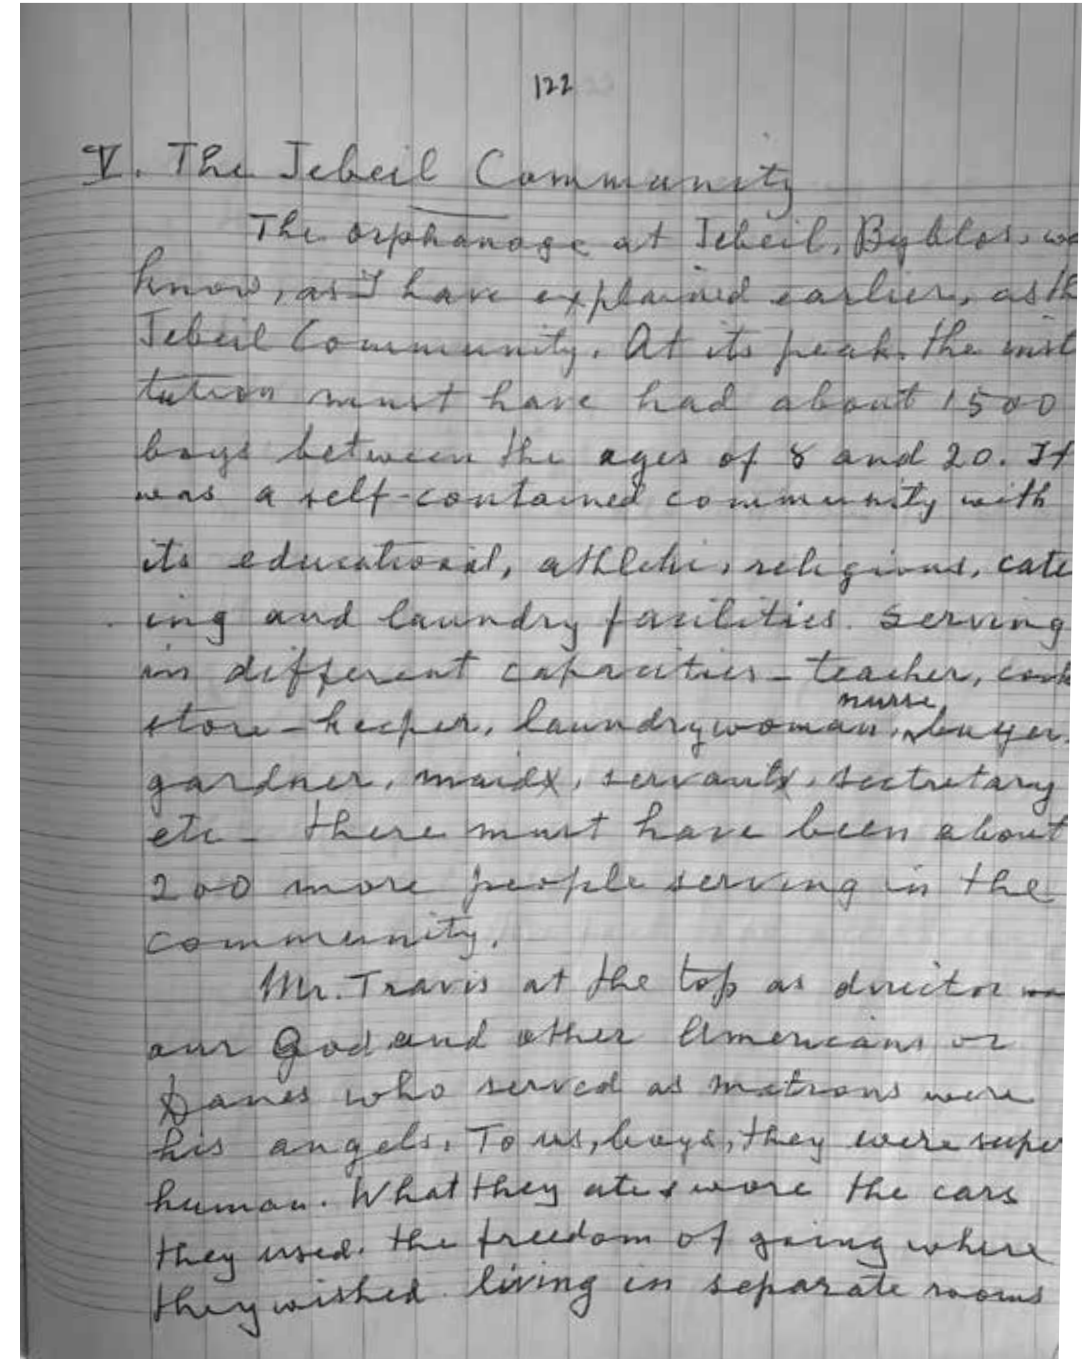 122
V. The Jebeil Community
The orphanage at Jebeil, Byblos, wa
know, as I have explained earlier, as th
Jebeil Community. At its peak, the inst
tution must have had about 1500
boys between the ages of 8 and 20. It
was a self-contained community with
its educational, athletic, religious, cate
ing and laundry facilities. Serving
in different capacities - teacher, cook
store-keeper, laundrywoman, nurse, buyer,
gardner, maid, servant, sectretary
etc - there must have been about
200 more people serving in the
community.
Mr. Travis at the top as director was
our God and other Americans or
Danes who served as matrons were
his angels. To us, boys, they were supe
human. What they ate & wore the cars
they used, the freedom of going where
they wished living in separate rooms